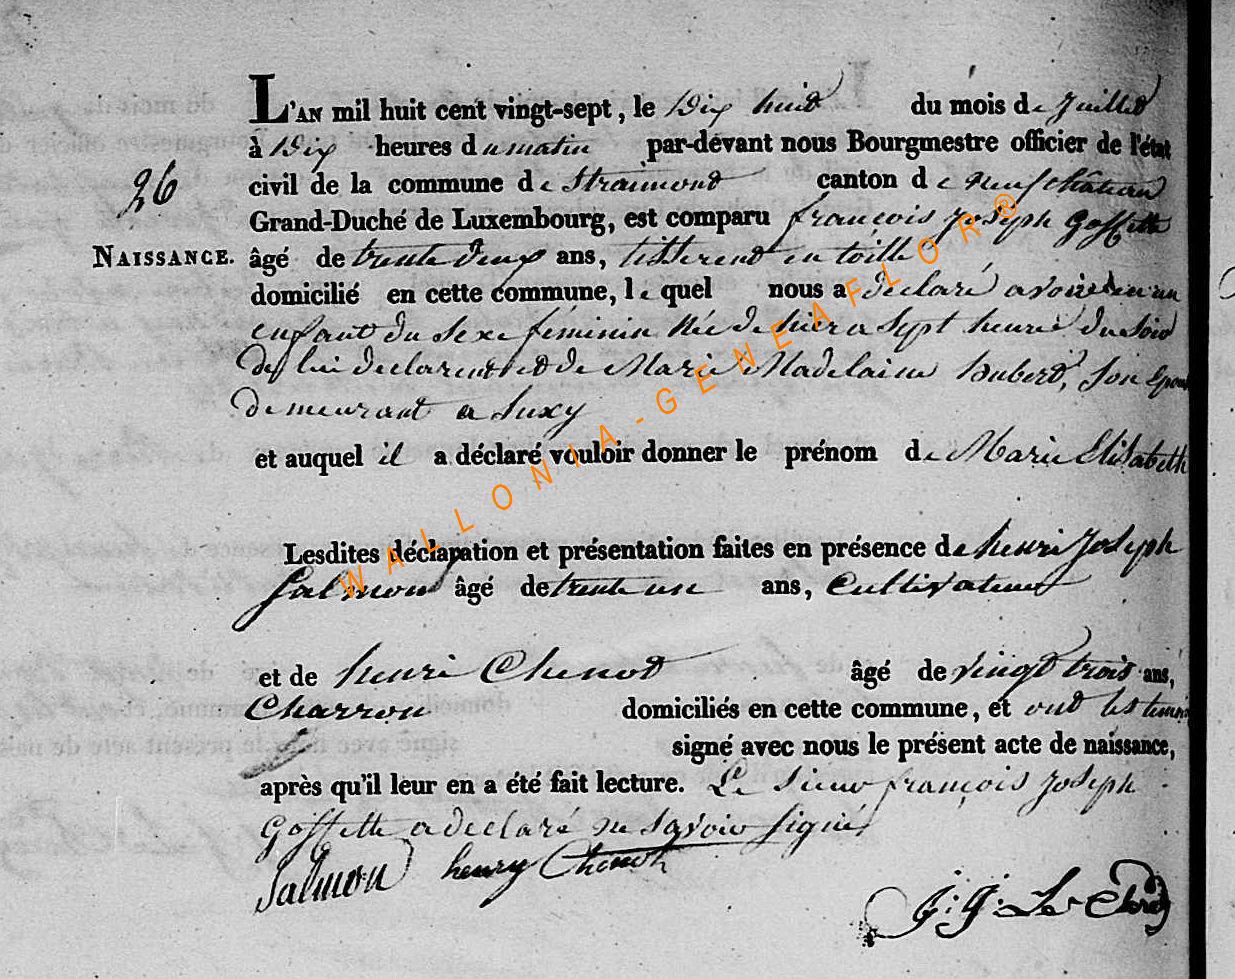 L'AN mil huit cent vingt-sept, le Dix huit du mois de Juillet
à Dix heures du matin par-devant nous Bourgmestre officier de l'état
26
civil de la commune de Straimont canton de neufchâteau
Grand-Duché de Luxembourg, est comparu françois Joseph Goffette
NAISSANCE. âgé de trente deux ans, tisserend en toille
domicilié en cette commune, lequel nous a déclaré avoir un
enfant du sexe féminin née de hier a sept heure du Soir
de lui declarent et de Marie Madelaine hubert, Son Epouse
demeurant a Suxy
et auquel il a déclaré vouloir donner le prénom de Marie Elisabeth
Lesdites déclaration et présentation faites en présence de henri Joseph
Salmon âgé de trente un ans, Cultivateur
et de henri Chenot âgé de vingt trois ans,
Charron domiciliés en cette commune, et ont les temoins
signé avec nous le présent acte de naissance,
après qu'il leur en a été fait lecture. Le Sieur françois Joseph
Goffette a declaré ne savoir signer
Salmon henry Chenot
J: J: Le Clerc
WALLONIA-GENEAFLOR®